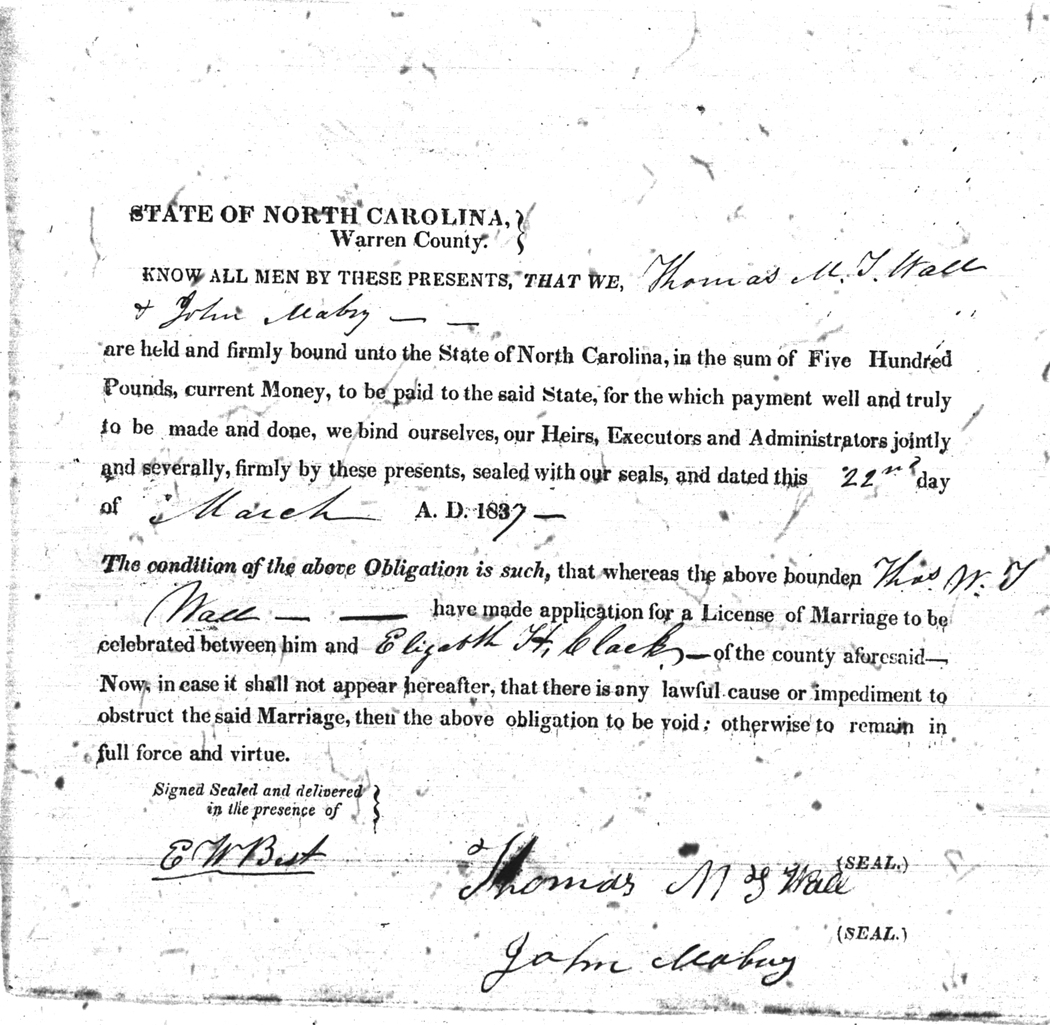 STATE OF NORTH CAROLINA,
Warren County.
KNOW ALL MEN BY THESE PRESENTS, THAT WE, Thomas M. T. Wall
& John Mabry — —
are held and firmly bound unto the State of North Carolina, in the sum of Five Hundred
Pounds, current Money, to be paid to the said State, for the which payment well and truly
to be made and done, we bind ourselves, our Heirs, Executors and Administrators jointly
and severally, firmly by these presents, sealed with our seals, and dated this 22nd day
of March A. D. 1837 —
The condition of the above Obligation is such, that whereas the above bounden Thos. W. T
Wall — — have made application for a License of Marriage to be
celebrated between him and Elizabth H. Clack, — of the county aforesaid—
Now, in case it shall not appear hereafter, that there is any lawful cause or impediment to
obstruct the said Marriage, then the above obligation to be void; otherwise to remain in
full force and virtue.
Signed Sealed and delivered
in the presence of
E W Best
Thomas M T Wall (SEAL.)
John Mabry (SEAL.)